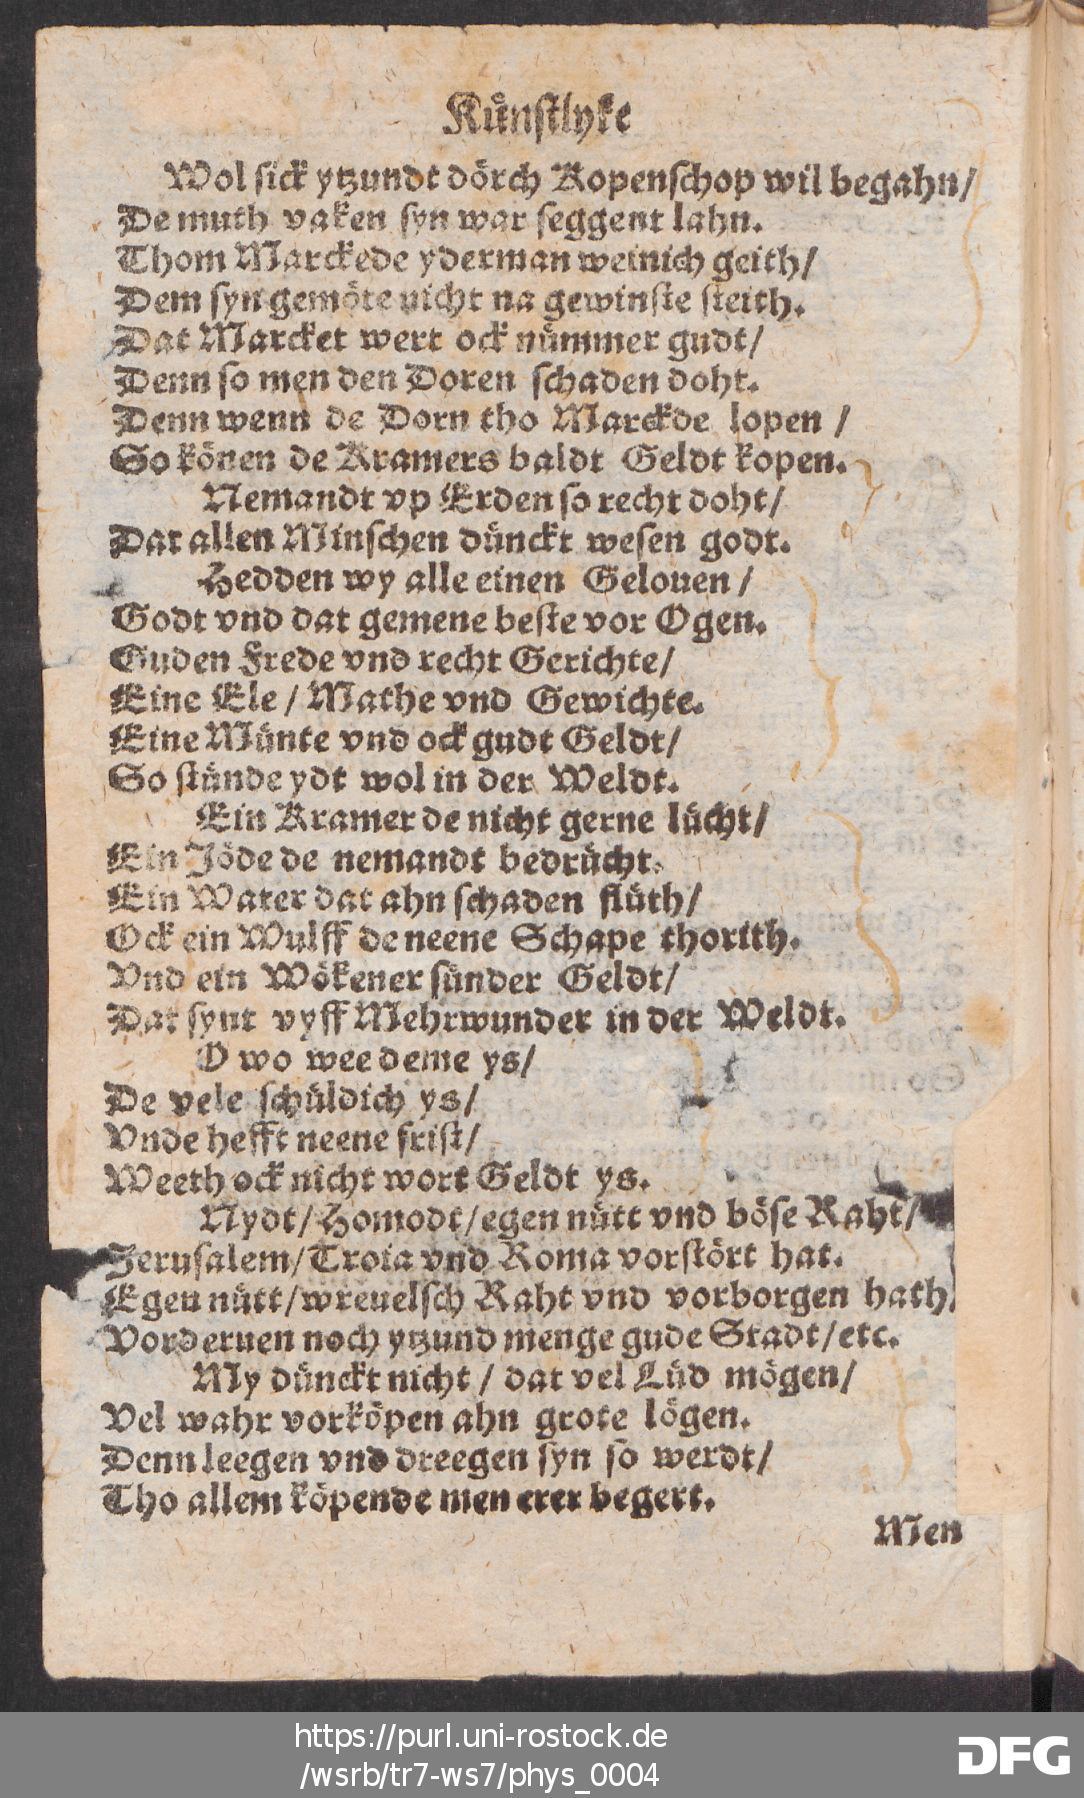 Kuͤnstlyke
Wol sick ytzundt dörch Kopenschop wil begahn/
De muth vaken syn war seggent lahn.
Thom Marckede yderman weinich geith/
Dem syn gemöte nicht na gewinste steith.
Dat Marcket wert ock nümmer gudt/
Denn so men den Doren schaden doht.
Denn wenn de Dorn tho Marckde lopen /
So können de Kramers baldt Geldt kopen.
Nemandt vp Erden so recht doht/
Dat allen Minschen dünckt wesen godt.
Hedden wy alle einen Gelouen /
Godt vnd dat gemene beste vor Ogen.
Guden Frede vnd recht Gerichte/
Eine Ele / Mathe vnd Gewichte.
Eine Münte vnd ock gudt Geldt/
So stünde ydt wol in der Weldt.
Ein Kramer de nicht gerne lücht/
Ein Jöde de nemandt bedrücht.
Ein Water dat ahn schaden flüth/
Ock ein Wulff de neene Schape thorith.
Vnd ein Wökener sünder Geldt/
Dat synt vyff Mehrwunder in der Weldt.
O wo wee deme ys/
De vele schüldich ys/
Vnde hefft neene frist/
Weeth ock nicht wort Geldt ys.
Nydt/ Homodt/ egen nütt vnd böse Raht/
Jerusalem/ Troia vnd Roma vorstört hat.
Egen nütt/ wreuelsch Raht vnd vorborgen hath,
Vorderuen noch ytzund menge gude Stadt/ etc.
My dünckt nicht / dat vel Lüd mögen/
Vel wahr vorköpen ahn grote lögen.
Denn leegen vnd dreegen syn so werdt/
Tho allem köpende men erer begert.
Men
https://purl.uni-rostock.de
/wsrb/tr7-ws7/phys_0004
DFG